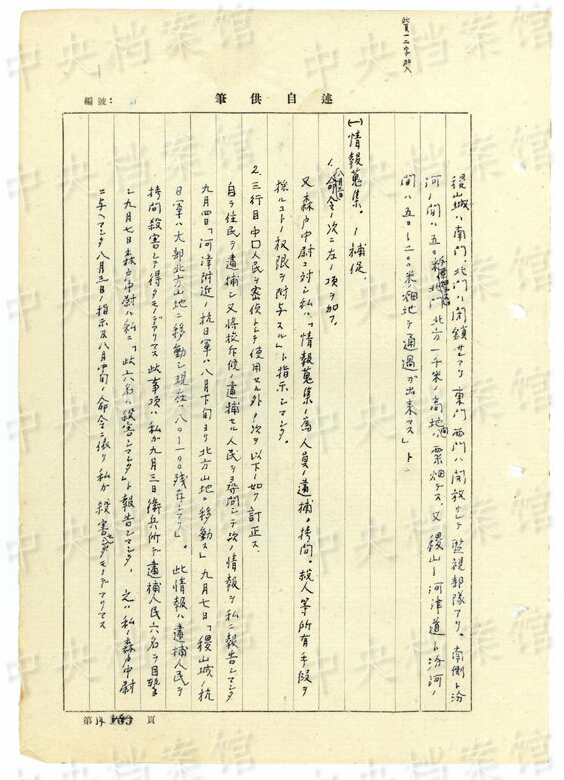 此頁一二字加入
述自供筆
編號:
稷山城ハ南門、北門ハ閉鎖サレアリ東門西門ハ開放サレテ監視部隊アリ。南側ト汾
河ノ間ハ五〇米 北門北方一千米ノ高地間ハ粟畑デス、又稷山―河津道ト汾河ノ
間ハ五〇―二〇〇米畑地デ通過が出来マス」ト
(一)情報蒐集。ノ補促、
1、八月三日命令ノ次ニ左ノ項ヲ加フ、
又森戸中尉ニ対シ私ハ「情報蒐集ノ為人員ノ逮捕、拷問、殺人等所有手段ヲ
採ルコトノ权限ヲ附与スル」ト指示シマシタ。
2、三行目中口人民ヲ密偵トシテ使用セル外ノ次ヲ以下ノ如ク訂正ス、
自ラ住民ヲ逮捕シ又将校斥候ノ逮捕セル人民ヲ尋問シテ次ノ情報ヲ私ニ報告シマシタ
九月四日「河津附近ノ抗日軍ハ八月下旬ヨリ北方山地ニ移動ス」九月七日「稷山城ノ抗
日軍ハ大部北方山地ニ移動シ現在ハ八〇―一〇〇残存シアリ」。此情報ハ逮捕人民ヲ
拷問殺害シテ得タモノデアリマス此事項ハ私が九月三日衛兵所デ逮捕人民六名ヲ目撃
シ九月七日森戸中尉ハ私ニ「此六名ハ殺害シマシタ」ト報告シマシタ、之ハ私ノ森戸中尉
ニ与ヘマシタ八月三日ノ指示及八月中旬ノ命令ニ依リ私が殺害シタモノデアリマス
第 頁
中央档案馆